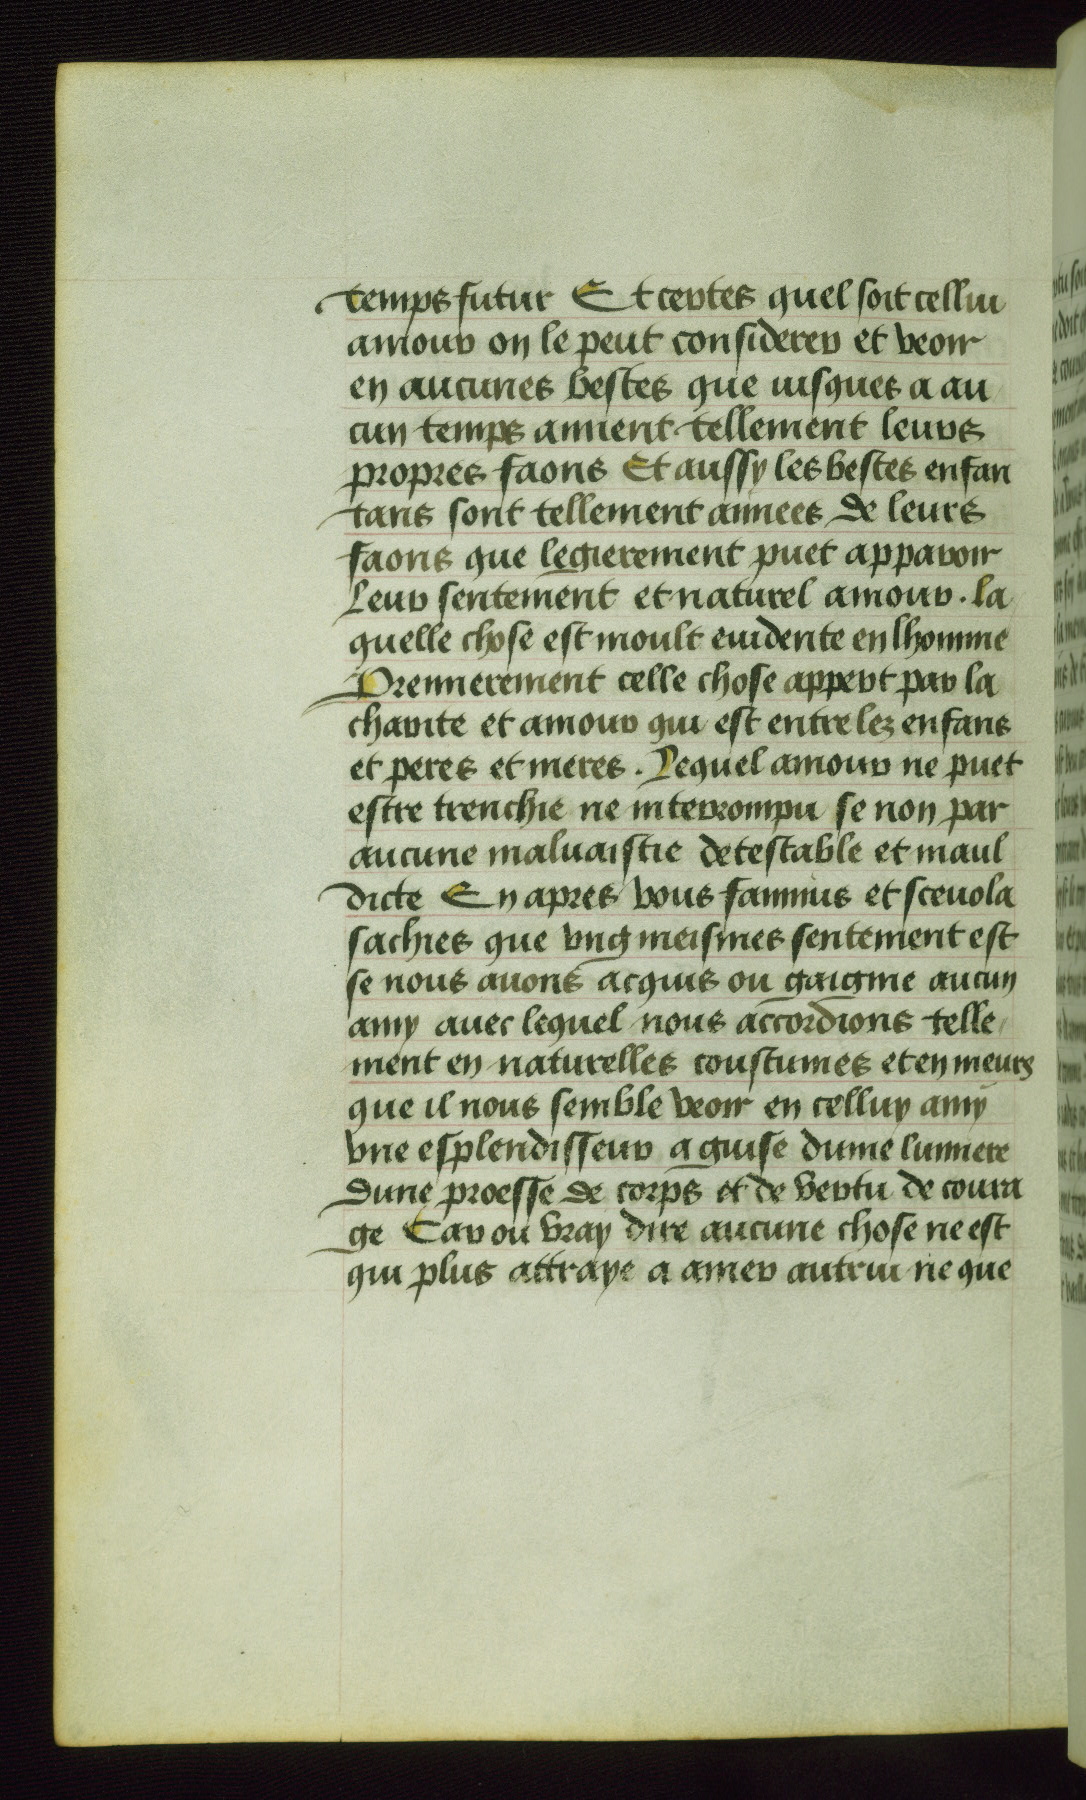 temps futur Et certes quel soit cellui
amour on le peut considerer et veoir
en aucunes bestes que iusques a au
cun temps aiment tellement leurs
propres faons Et aussy les bestes enfan
tans sont tellement aimees de leurs
faons que legierement puet apparoir
Leur sentement et naturel amour . la
quelle chose est moult euidente en lhomme
Premierement celle chose appert par la
charite et amour qui est entre lez enfans
et peres et meres . Lequel amour ne puet
estre trenchie ne interrompu se non par
aucune maluaistie detestable et maul
dicte En apres vous fannius et sceuola
sachies que vng meismes sentement est
se nous auons acquis ou gaignie aucun
amy auec lequel nous accordions telle
ment en naturelles coustumes et en meurs
que il nous semble veoir en celluy amy
vne esplendisseur a guise dune lumiere
dune proesse de corps et de vertu de coura
ge Car ou vray dire aucune chose ne est
qui plus attraye a amer autrui ne que